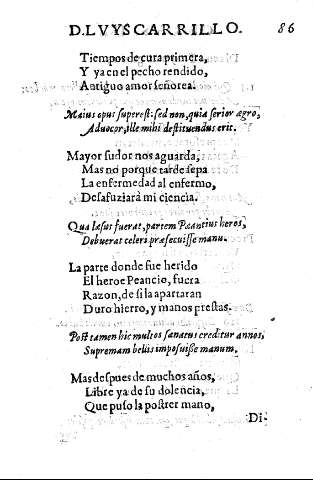 D. LVYS CARRILLO. 86
Tiempos de cura primera,
Y ya en el pecho rendido,
Antiguo amor señorea.
Maius opus superest: sed non, quia serior ægro,
Aduocor, ille mihi destituendus erit.
Mayor sudor nos aguarda,
Mas no porque tarde sepa
La enfermedad al enfermo,
Desafuziará mi ciencia.
Qua læsus fuerat, partem Pœantius heros,
Debuerat celeri præsecuisse manu.
La parte donde fue herido
El heroe Peancio, fuera
Razon, de si la apartaran
Duro hierro, y manos prestas.
Post tamen hic multos sanatus creditur annos,
Supremam bellis imposuisse manum.
Mas despues de muchos años,
Libre ya de su dolencia,
Que puso la postrer mano,
Di-